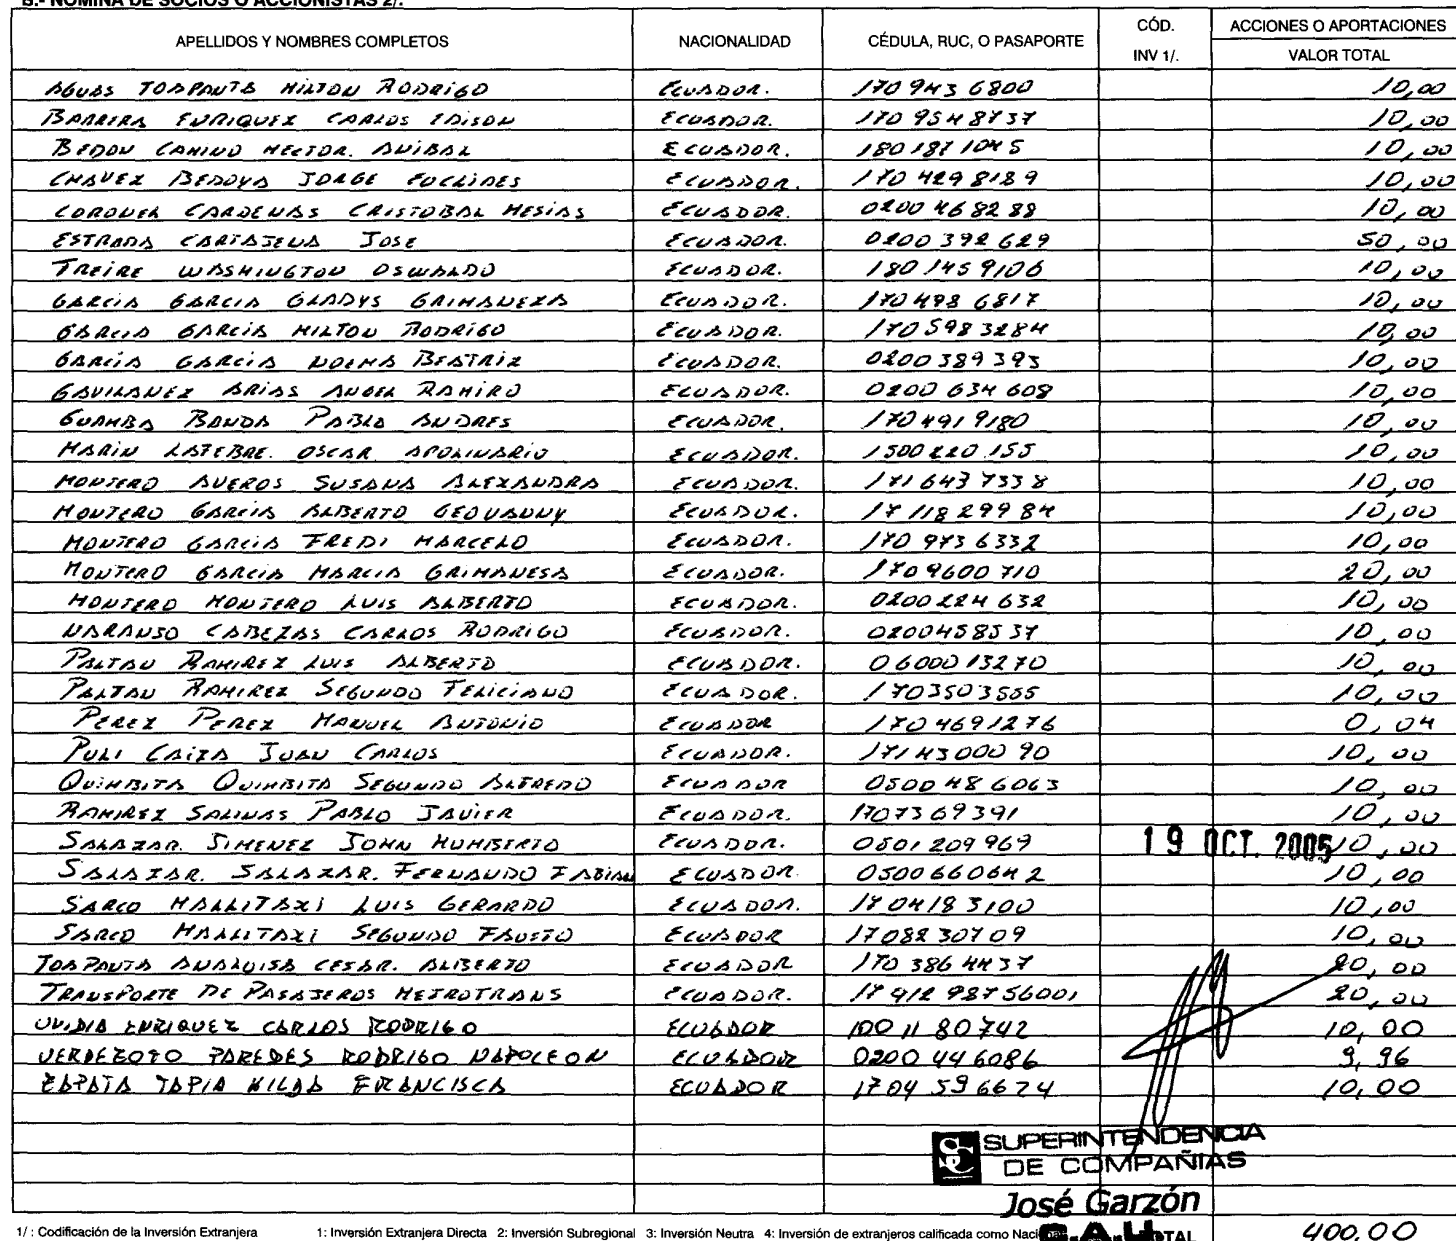 B.- NOMINA DE SOCIOS O ACCIONISTAS 2/.
APELLIDOS Y NOMBRES COMPLETOS NACIONALIDAD CÉDULA, RUC, O PASAPORTE CÓD. INV 1/. ACCIONES O APORTACIONES VALOR TOTAL
AGUAS TOAPANTA MILTON RODRIGO ECUADOR. 170 943 6800 10,00
BARRERA ENRIQUEZ CARLOS EDISON ECUADOR. 170 9548737 10,00
BEDON CAMINO HECTOR. ANIBAL ECUADOR. 180 187 1045 10,00
CHAVEZ BEDOYA JORGE EUCLIDES ECUADOR. 170 429 8189 10,00
CORONEL CARDENAS CRISTOBAL MESIAS ECUADOR. 0200 468288 10,00
ESTRADA CARTAJENA JOSE ECUADOR. 0200 392 629 50,00
FREIRE WASHINGTON OSWALDO ECUADOR. 180 1459106 10,00
GARCIA GARCIA GLADYS GRIMANEZA ECUADOR. 170498 6817 10,00
GARCIA GARCIA MILTON RODRIGO ECUADOR. 170 598 3284 10,00
GARCIA GARCIA NORMA BEATRIZ ECUADOR. 0200 389 393 10,00
GAVILANEZ ARIAS ANGEL RAMIRO ECUADOR. 0200 634 608 10,00
GUAMBA BANDA PABLO ANDRES ECUADOR. 170 491 9180 10,00
MARIN LATEBRE. OSCAR APOLINARIO ECUADOR. 1500 220 155 10,00
MONTERO AVEROS SUSANA ALEXANDRA ECUADOR. 171 643 7338 10,00
MONTERO GARCIA ALBERTO GEOVANNY ECUADOR. 17 118 299 84 10,00
MONTERO GARCIA FREDI MARCELO ECUADOR. 170 973 6332 10,00
MONTERO GARCIA MARCIA GRIMANESA ECUADOR. 170 9600 710 20,00
MONTERO MONTERO LUIS ALBERTO ECUADOR. 0200 224 632 10,00
NARANJO CABEZAS CARLOS RODRIGO ECUADOR. 0200458537 10,00
PALTAN RAMIREZ LUIS ALBERTO ECUADOR. 06000 13270 10,00
PALTAN RAMIREZ SEGUNDO FELICIANO ECUADOR. 1703503555 10,00
PEREZ PEREZ MANUEL ANTONIO ECUADOR 170 4691276 0,04
PULI CAIZA JUAN CARLOS ECUADOR. 171 43000 90 10,00
QUIMBITA QUIMBITA SEGUNDO ALFREDO ECUADOR 0500 48 6063 10,00
RAMIREZ SALINAS PABLO JAVIER ECUADOR. 1707369391 10,00
SALAZAR. JIMENEZ JOHN HUMBERTO ECUADOR. 0501 209 969 10,00
19 OCT. 2005
SALAZAR. SALAZAR. FERNANDO FABIAN ECUADOR. 0500660642 10,00
SARCO MALLITAXI LUIS GERARDO ECUADOR. 1704183100 10,00
SARCO MALLITAXI SEGUNDO FAUSTO ECUADOR 1708230709 10,00
TOAPANTA ANALUISA CESAR. ALBERTO ECUADOR 170 386 4437 20,00
TRANSPORTE DE PASAJEROS METROTRANS ECUADOR. 17 912 98756001 20,00
UVIDIA ENRIQUEZ CARLOS RODRIGO ECUADOR 100 11 80742 10,00
VERDEZOTO PAREDES RODRIGO NAPOLEON ECUADOR 0200 44 6086 9,96
ZAPATA TAPIA HILDA FRANCISCA ECUADOR 1704 59 6674 10,00
SUPERINTENDENCIA
DE COMPAÑIAS
José Garzón
C.A.U.
TOTAL 400,00
1/ : Codificación de la Inversión Extranjera 1: Inversión Extranjera Directa 2: Inversión Subregional 3: Inversión Neutra 4: Inversión de extranjeros calificada como Nacional